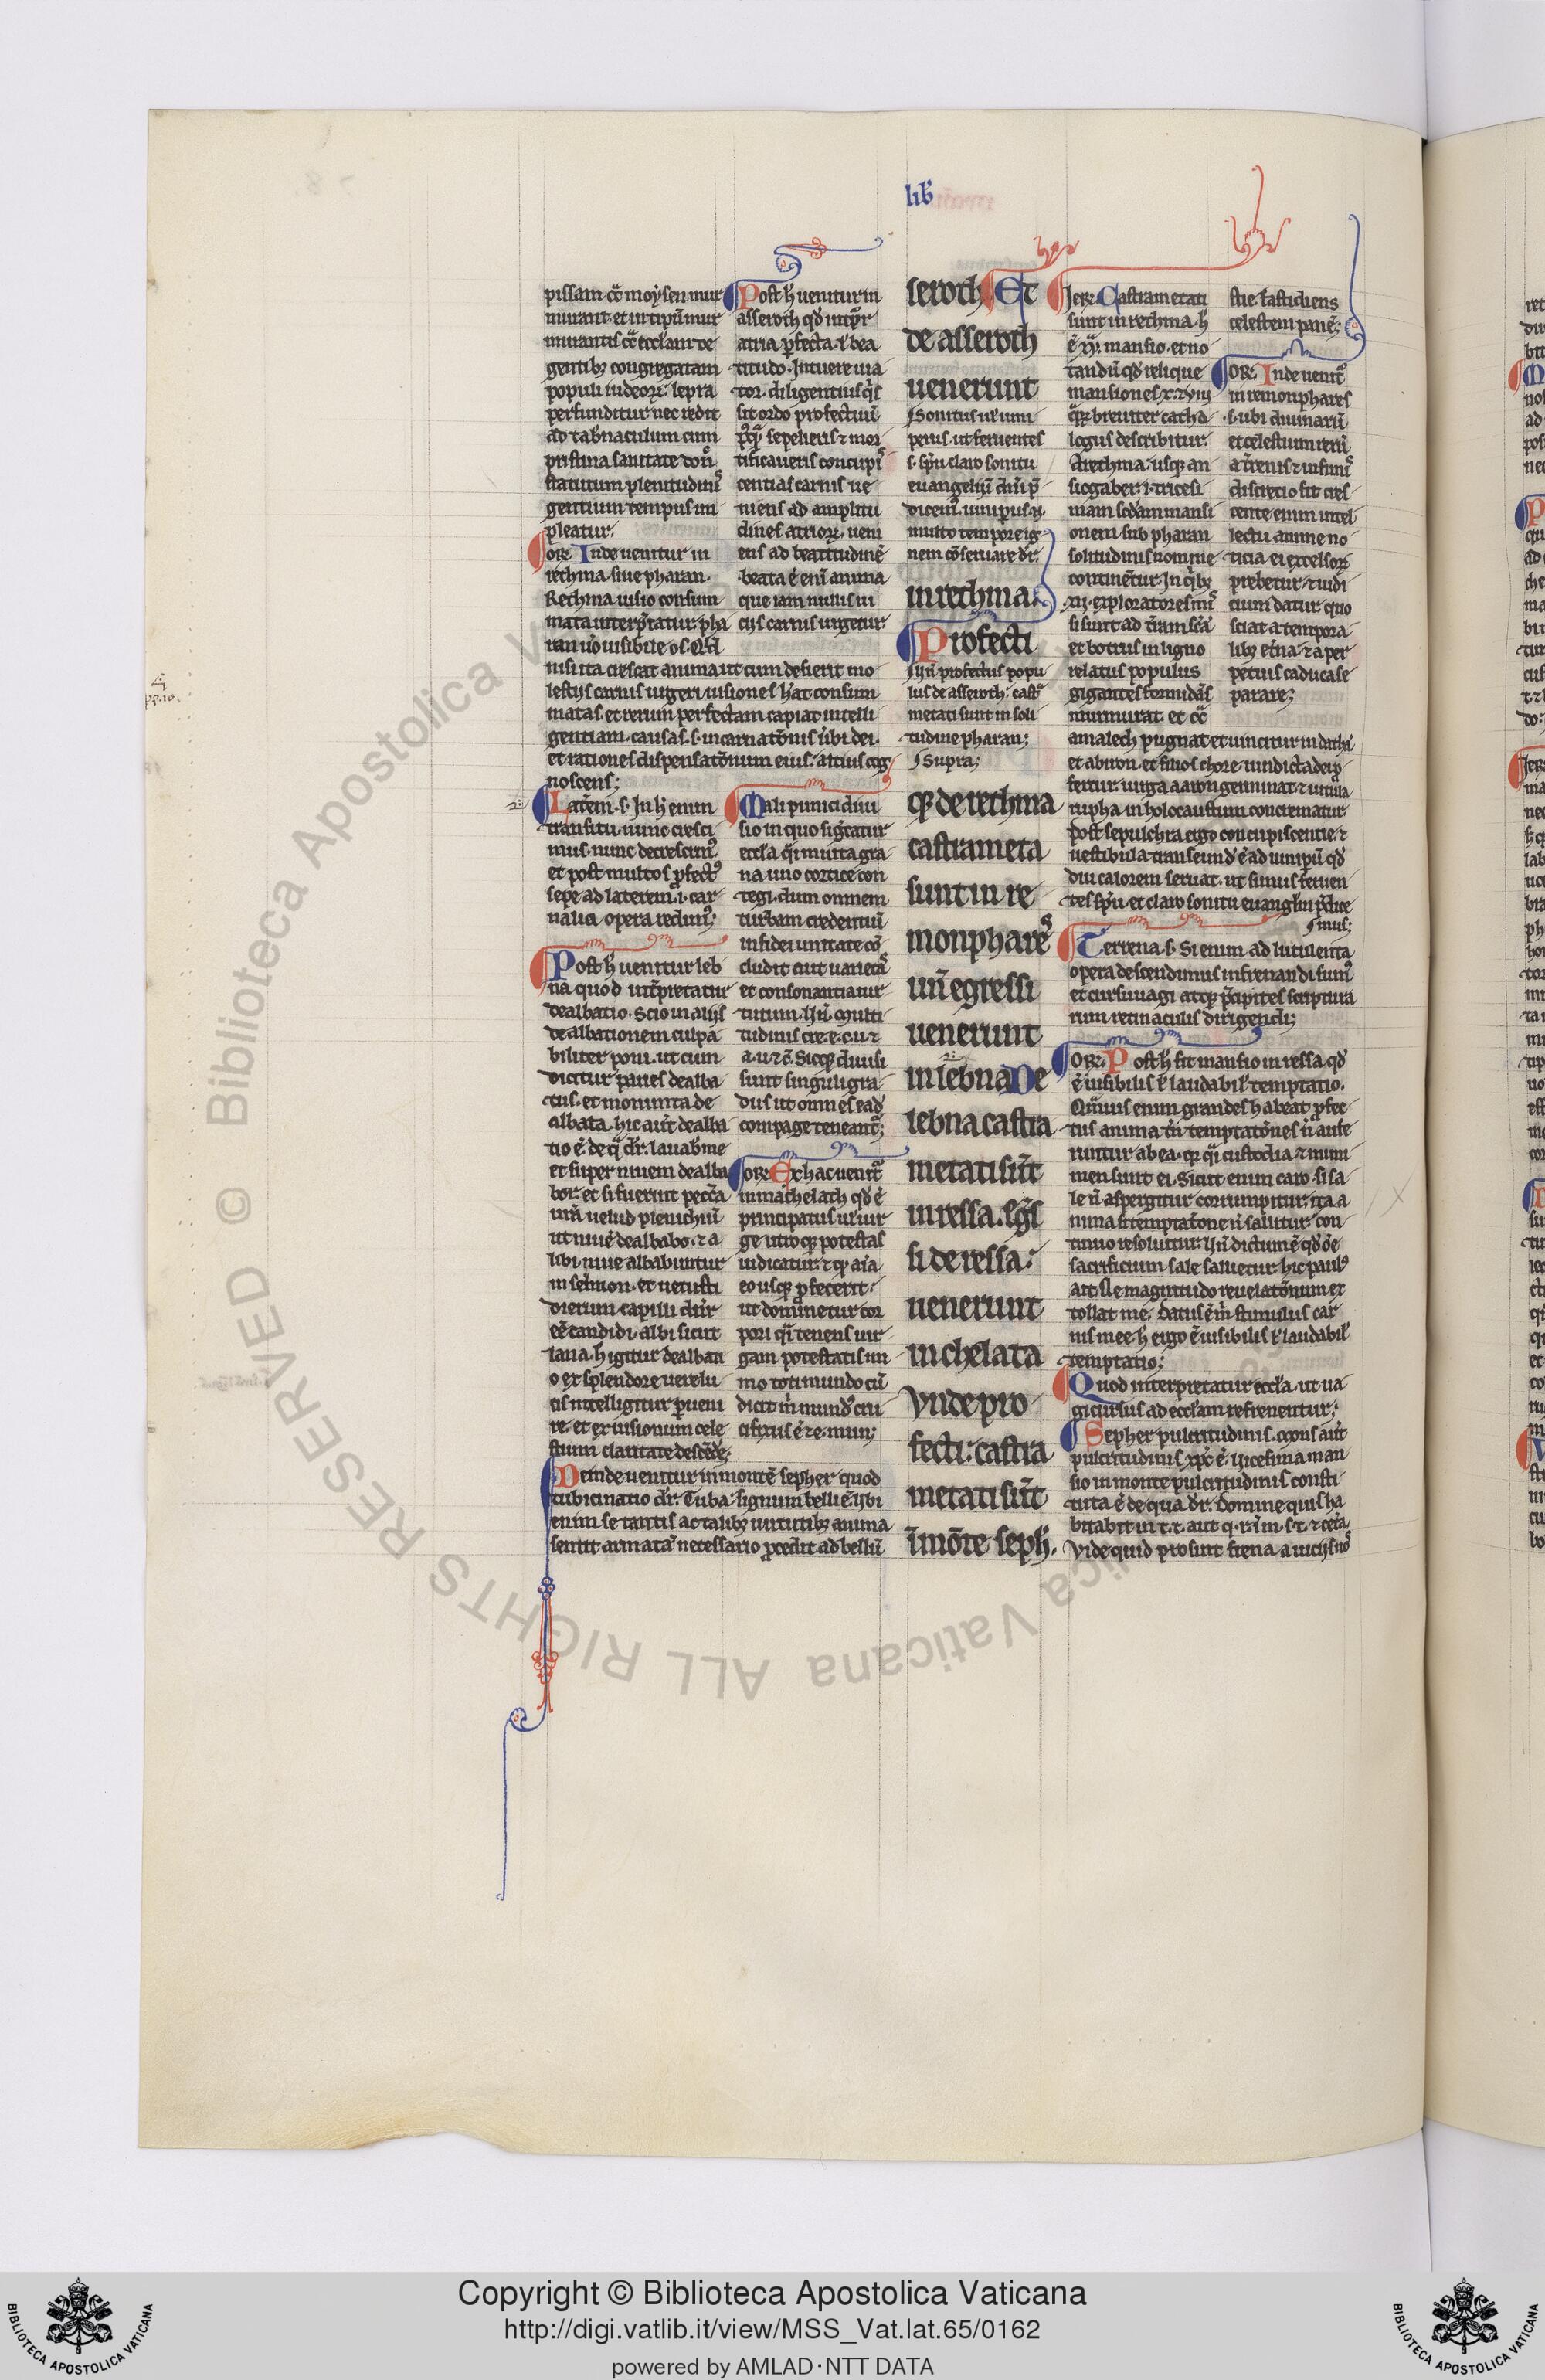 lib̅
pissam. cō moysen mur
murant. et in tipū mur
murantis cō ecclām de
gentib; congregatam
populi iudeoꝝ. lepra
perfunditur nec redit
ad tab̅naculum cum
pristina sanitate don̅
statutum plenitudinis
gentium tempus im
pleatur.
OR. Inde uenitur in
rethma. siue pharan.
Rethma uisio consum
mata interp̅tatur. pha
ran u̅o uisibile os. Q̅d
nisi ita crescat anima ut cum desierit mo
lestijs carnis urgeri. uisiones h̅at consum
matas. et rerum perfectam capiat intelli
gentiam. causas. s. incarnatōnis u̅bi dei.
et rationes dispensatōnum eius. altius cog
noscens;
Lat̅em. s. In h̅ enim
transitu. nunc cresci
mus. nunc decrescim᷒
et post multos p̅fect᷒
sepe ad laterem. i. car
nalia opera redim᷒;
Post h̅ uenitur leb
na quod int̅pretatur
dealbatio. Scio in alijs
dealbationem culpa
biliter poni. ut cum
dicitur paries dealba
tus. et monimta de
albata. hic aūt dealba
tio ē. de q̅ d̅r. lauab̅ me
et super niuem dealba
bor. et si fuerint pecc̅a
ur̅a uelud phenichiū
ut niuē dealbabo. ⁊ a
libi. niue albabuntur
in selmon. et uetusti
dierum. capilli dn̅r
eē candidi. albi sicut
lana. h̅ igitur dealbati
o ex splendore uere lu
cis intelligitur p̅ueni
re. et ex uisionum cele
stium claritate descēde̅;
Deinde uenitur in montē sepher quod
tubicinatio d̅r. Tuba. signum belli ē. ubi
enim se tantis ac talib; uirtutib; anima
sentit armatā. necessario p̅cedit ad bellū
Post h̅ uenitur in
asseroth qd̅ int̅p̅r
atria p̅fecta. ł bea
titudo. Intuere uia
tor. diligentius q̅s
sit ordo profectuū
p᷒q̅ sepelieris ⁊ mor
tificaueris concupi᷒
centias carnis ue
niens ad amplitu
dines atrioꝝ. ueni
ens ad beatitudinē
beata ē enī anima
que iam nullis ui
cijs carnis urgetur
Mali punici diui
sio in quo sig̅catur
eccl̅a. q̅i multa gra
na uno cortice con
tegi. dum omnem
turbam credentiū
in fidei unitate cō
cludit. aut uarieta᷒
et consonantia uir
tutum. Un̅. Multi
tudinis cre. e. c. u. ⁊
a. u. ⁊ c̅. Sicq; diuisi
sunt singuli gra
dus ut omnes ead̅
compage teneant̅;
OR. Ex hac uenit̅
in machelath qd̅ ē
principatus. ł uir
ge utroq; potestas
indicatur. ⁊ q̅ aīa
eo usq; p̅fecerit.
ut dominetur cor
pori q̅i tenens uir
gam potestatis im
mo toti mundo cū
dicit m̅ mund᷒ cru
cifixus ē ⁊ e. mun;
seroth Et
de asseroth
uenerunt
Sonitus uł iuni
perus. ut feruentes
s. sp̅u claro sonitu
euangeliū dn̅i p̅
dicem᷒. iunip̅us n̅.
multo tempore ig
nem cōseruare d̅r.
in rethma.
Profecti
Un̅ profectus popu
lus de asseroth. cast̅
metati sunt in soli
tudine pharan;
Supra;
q; de rethma
castrameta
sunt in re
monphare᷒
un̅ egressi
uenerunt
in lebna De
lebna castra
metati sūt
in ressa. Eg̅s
si de ressa.
uenerunt
in chelata
Vnde pro
fecti. castra
metati sūt
ī mōte seph̅.
Jer. Castrametati
sunt in rethma. h̅
ē .xv. mansio. et no
tandū qd̅ relique
mansiones .x. ⁊ viij
q̅ꝝ breuiter catha
logus describitur.
a rethma. usq; an
siogaber. i. tricesi
mam scd̅am mansi
onem sub pharan
solitudinis nomine
continētur. In q̅b;
.xij. exploratores mi᷒
si sunt ad t̅ram sc̅a̅
et botrus in ligno
relatus populus
gigantes formidās
murmurat. et cō
amalech pugnat et uincitur in datha̅
et abiron. et filios chore. uindicta dei p̅
fertur. uirga aaron germinat. ⁊ uitula
rupha in holocaustum concrematur
post sepulchra ergo concupiscentie. ⁊
uestibula. transeund᷒ ē ad iunip̅u̅ qd̅
diu calorem seruat. ut simus feruen
tes sp̅u. et claro sonitu euanglm̅ p̅dice
mus;
Terrena. s. Si enim ad lutulenta
opera descendimus infrenandi sum᷒
et cursu uagi atq; p̅cipites scriptura
rum retinaculis dirigendi;
OR. Post h̅ fit mansio in ressa. qd̅
ē uisibilis ł laudabił temptatio.
Q̅muis enim grandes habeat p̅fec
tus anima. tn̅ temptatōnes n̅ aufe
runtur ab ea. q; q̅i custodia. ⁊ muni
men sunt ei. Sicut enim caro. si sa
le n̅ aspergitur corrumpitur. ita a
nima si temptatōne n̅ salitur. con
tinuo resoluitur. Un̅ dictum ē qd̅ oē
sacrificium sale salietur. hic paul᷒
ait. Ne magnitudo reuelatōnum ex
tollat me. datus ē m̅ stimulus car
nis mee. h̅ ergo ē uisibilis ł laudabił
temptatio;
Quod interpretatur eccl̅a. ut ua
gi cursus ad eccl̅am refrenentur;
Sepher pulcritudinis. mons aūt
pulcritudinis xp̅c ē. Uicesima man
sio in monte pulcritudinis consti
tuta ē de qua d̅r. Domine quis ha
bitabit in t. t. aut q. r. i̅ m. s. t. ⁊ cete̅a
Vide quid prosunt frena. a uicijs no᷒
stie. fastidiens
celestem panē;
OR. Inde uenit̅
in remonphares
s. ubi diuinaꝝ
et celestium rerū
a t̅renis ⁊ infimi᷒
discretio fit cres
cente enim intel
lectu anime no
ticia ei excelsoꝝ
prebetur. ⁊ iudi
cium datur quo
sciat a tempora
lib; et̅na. ⁊ a per
petuis caduca se
parare;